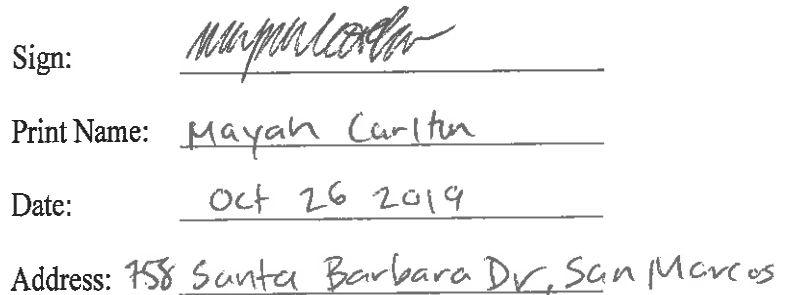 Sign:
Print Name: Mayah Carlton
Date: Oct 26 2019
Address: 758 Santa Barbara Dr, San Marcos